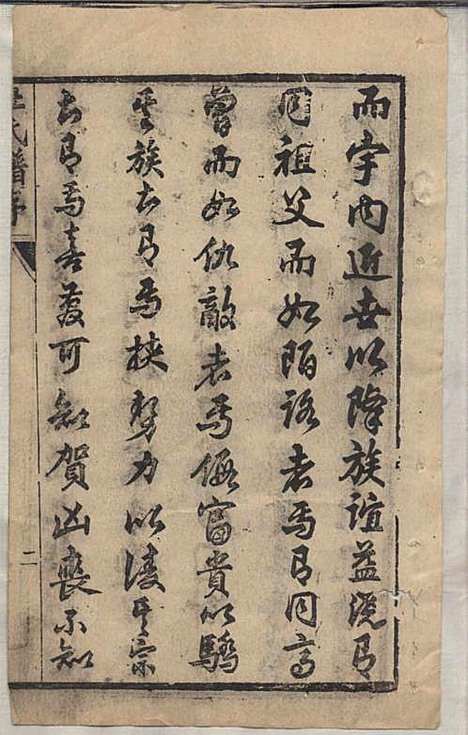 而宇內近世以降族誼益澆有
同祖父而如陌路者焉有同高
曾而如仇敵者焉富貴以驕
其族者有焉挾勢力以凌其宗
者有焉喜慶可知賀凶喪不知
氏譜序
二